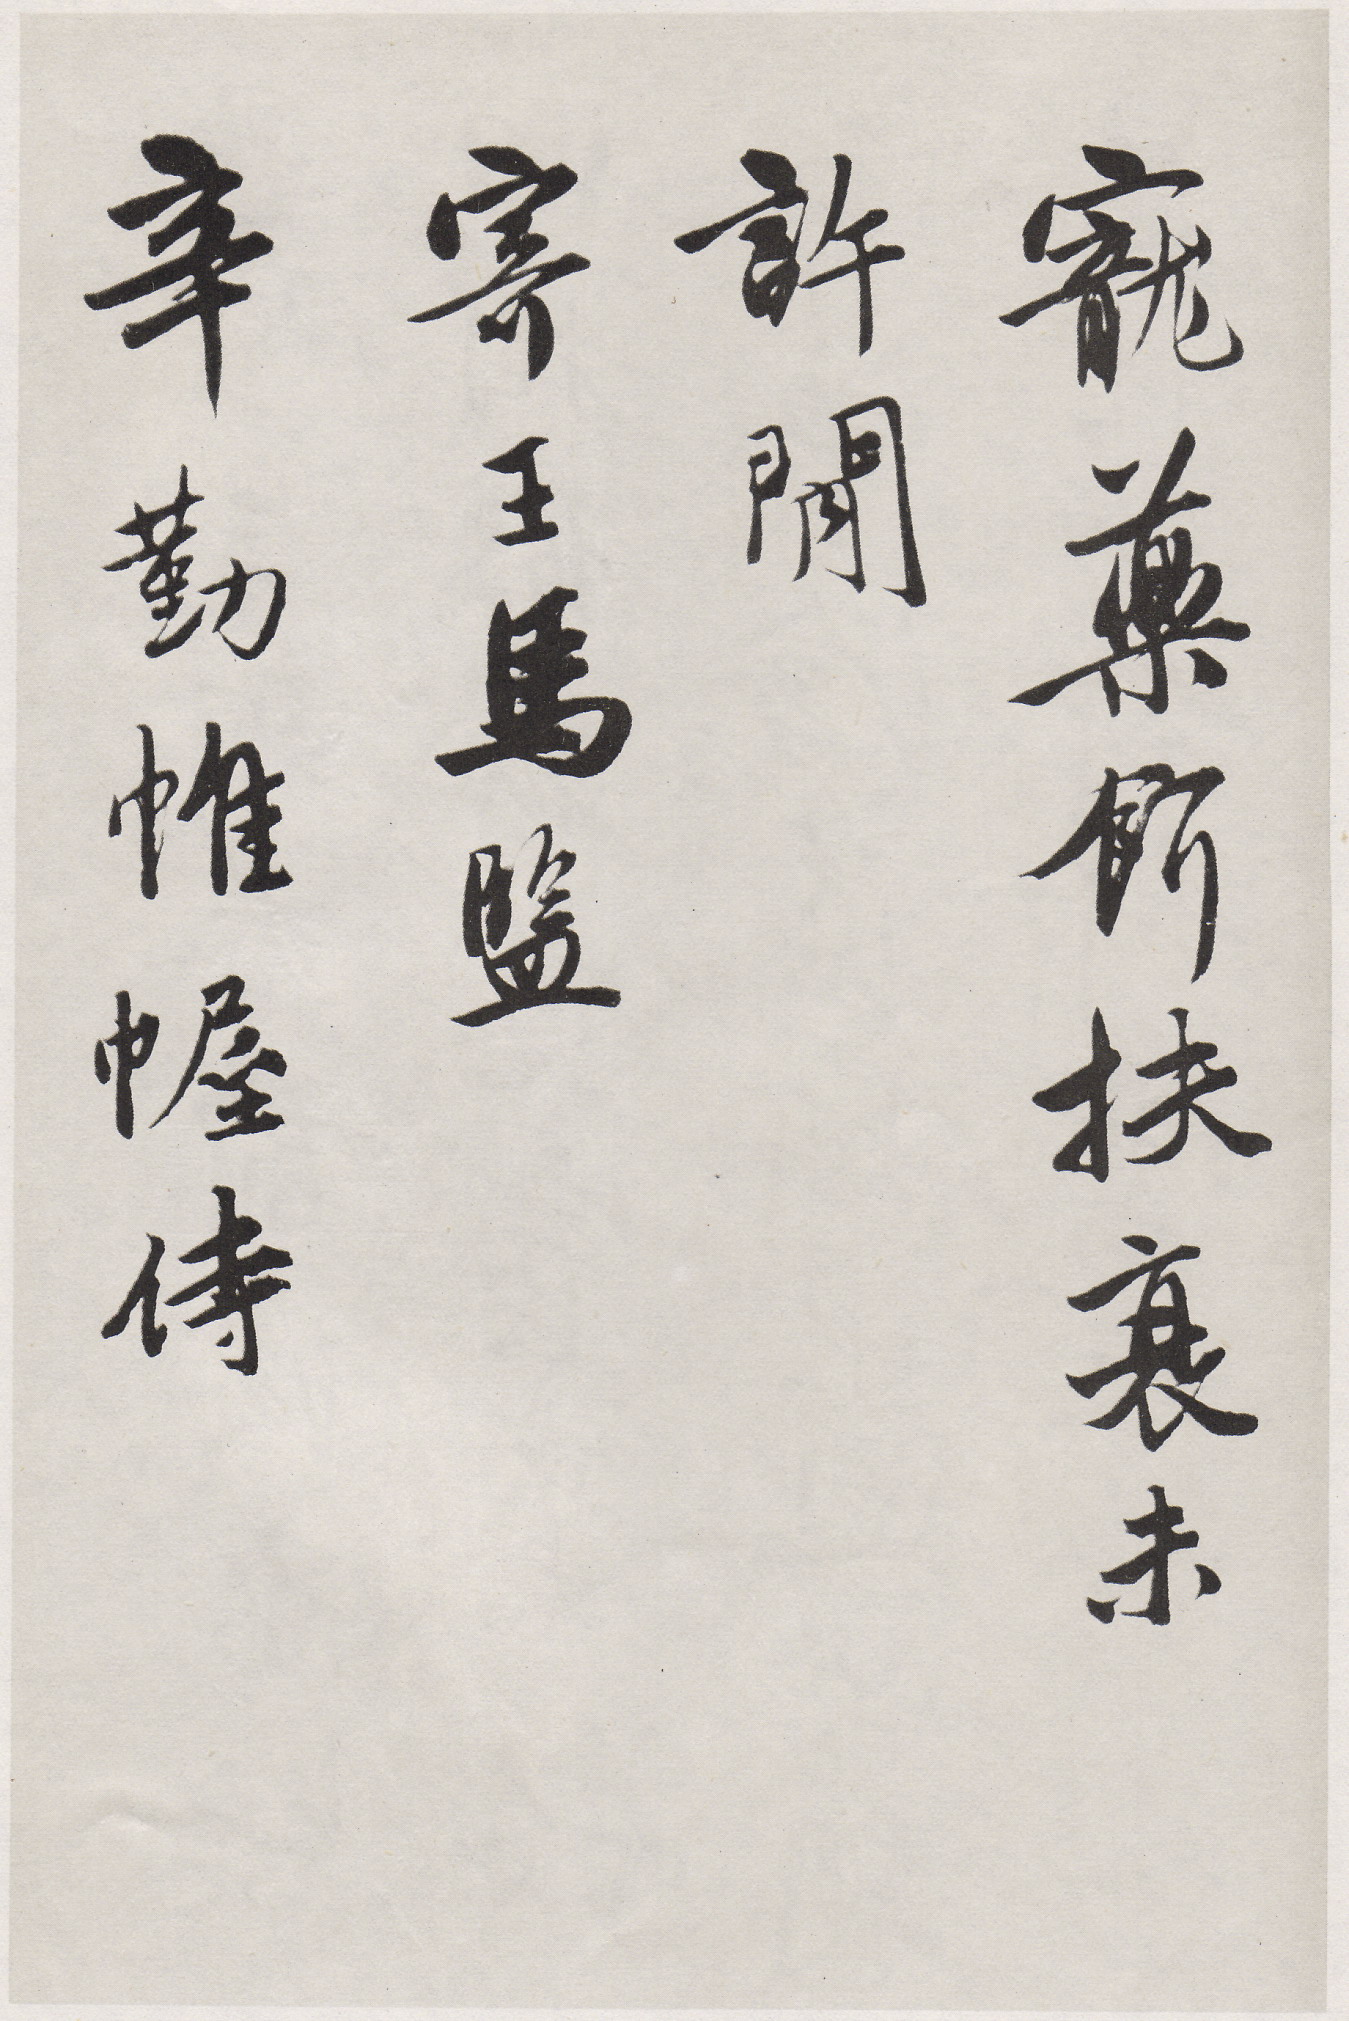 寵藥餌扶衰未
許閒
寄王馬監
辛勤帷幄侍